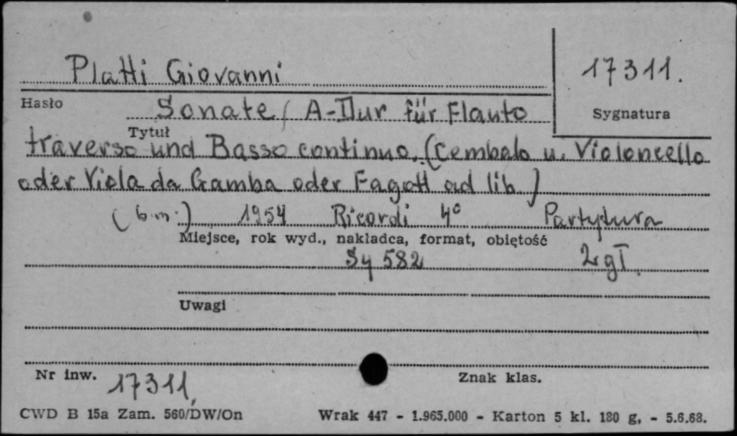 Platti Giovanni
17311.
Hasło
Sonate (A-Dur für Flauto
Sygnatura
Tytuł
traverso und Basso continuo. (Cembalo u. Violoncello
oder Viola da Gamba oder Fagott ad lib.)
(b.m.) 1954 Ricordi 4° Partytura
Miejsce, rok wyd., nakładca, format, objętość
Sy 582 2 gł.
Uwagi
Nr inw. 17311.
Znak klas.
CWD B 15a Zam. 560/DW/On Wrak 447 - 1.965.000 - Karton 5 kl. 180 g. - 5.6.68.